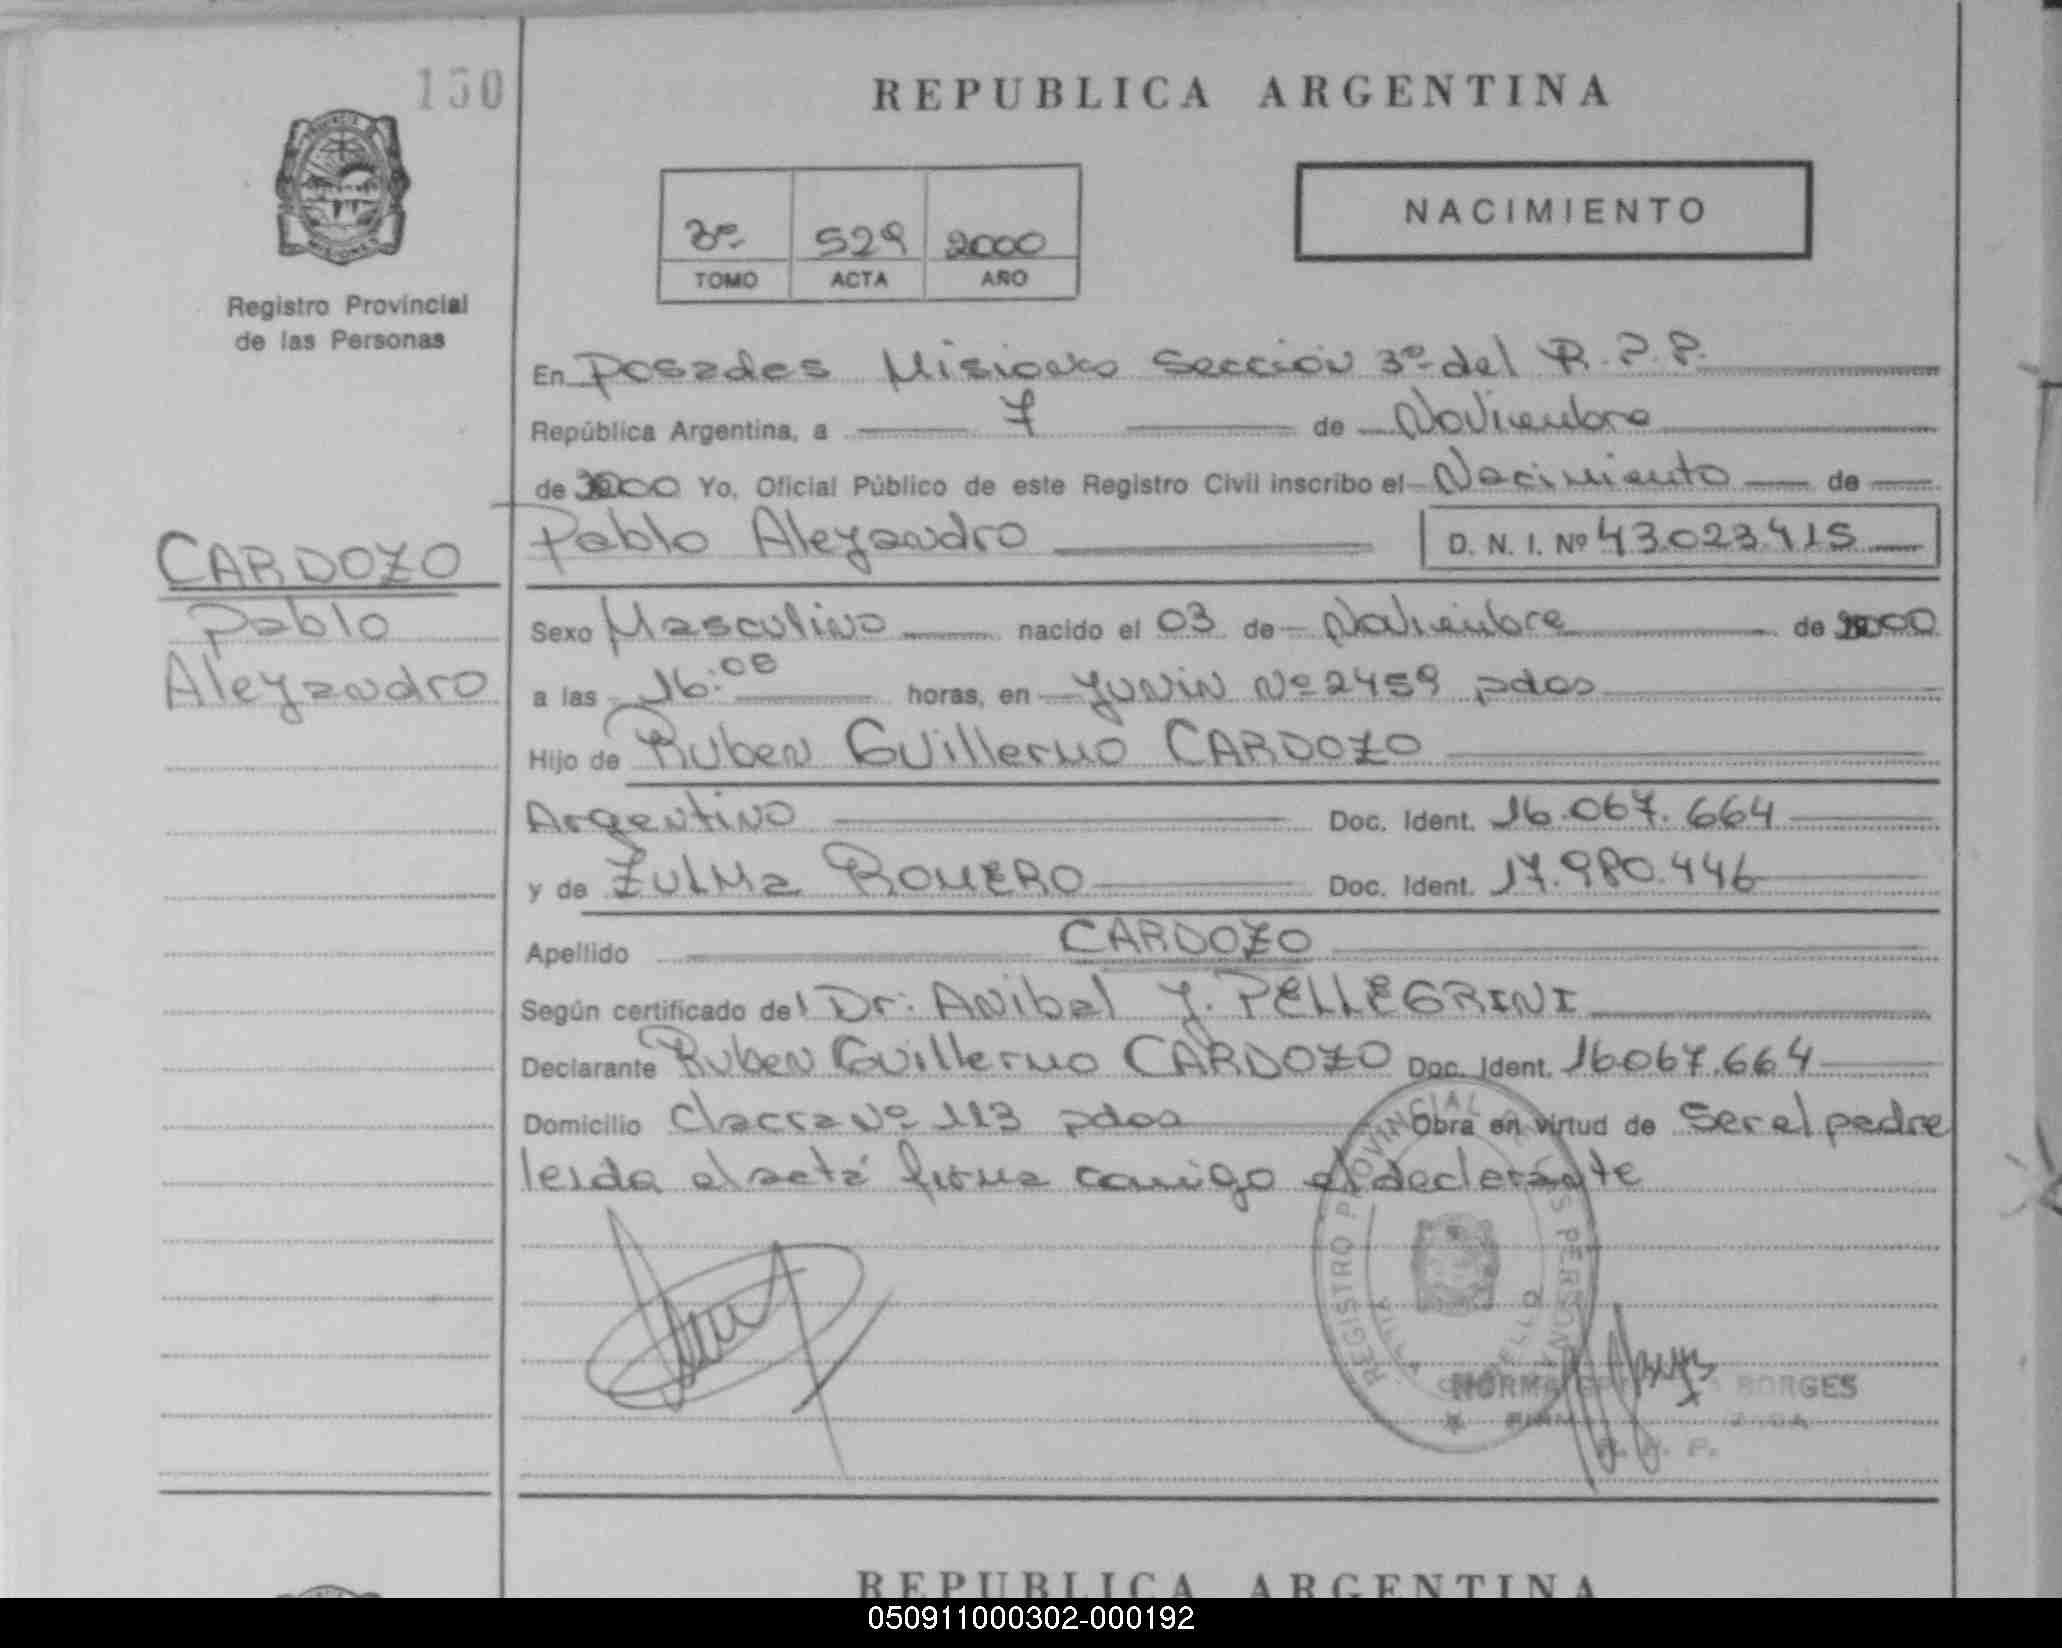 150
REPUBLICA ARGENTINA
PROVINCIA DE
MISIONES
Registro Provincial
de las Personas
3º 529 2000
TOMO ACTA AÑO
NACIMIENTO
En Posadas Misiones Sección 3º del R.P.P.
República Argentina, a 7 de Noviembre
de 2000 Yo, Oficial Público de este Registro Civil inscribo el Nacimiento de
Pablo Aleyandro D. N. I. Nº 43.023.415
CARDOZO
Pablo
Aleyandro
Sexo Masculino nacido el 03 de Noviembre de 2000
a las 16:08 horas, en Junin Nº 2459 pdas
Hijo de Ruben Guillermo CARDOZO
Argentino Doc. Ident. 16.067.664
y de Zulma ROMERO Doc. Ident. 17.980.446
Apellido CARDOZO
Según certificado del Dr: Anibal J. PELLEGRINI
Declarante Ruben Guillermo CARDOZO Doc. Ident. 16067.664
Domicilio Chacra Nº 113 pdas Obra en virtud de ser el padre
leida el acta firma comigo el declarante
REGISTRO PROVINCIAL DE LAS PERSONAS
NORMA BORGES
REPUBLICA ARGENTINA
050911000302-000192